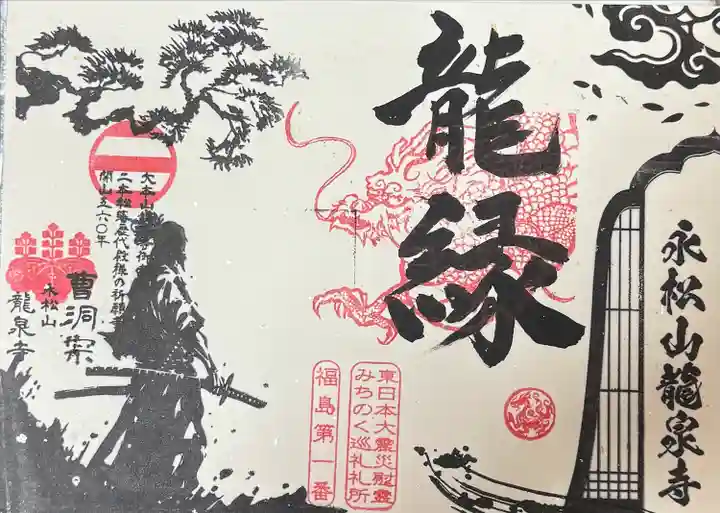 永松山龍泉寺
龍縁
東日本大震災慰霊
みちのく巡礼札所
福島第一番
大本山
二本松藩歴代殿様の祈願
開山五六〇年
曹洞宗
永松山
龍泉寺